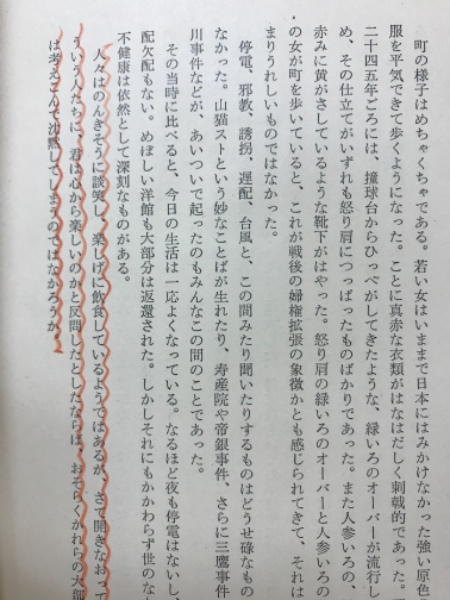 町の様子はめちゃくちゃである。若い女はいままで日本にはみかけなかった強い原色
服を平気できて歩くようになった。ことに真赤な衣類がはなはだしく刺戟的であった。
二十四五年ごろには、撞球台からひっぺがしてきたような、緑いろのオーバーが流行し
め、その仕立がいずれも怒り肩につっぱったものばかりであった。また人参いろの、
赤みに黄がさしているような靴下がはやった。怒り肩の緑いろのオーバーと人参いろの
の女が町を歩いていると、これが戦後の婦権拡張の象徴かとも感じられてきて、それは
まりうれしいものではなかった。
停電、邪教、誘拐、遅配、台風と、この間みたり聞いたりするものはどうせ碌なもの
なかった。山猫ストという妙なことばが生れたり、寿産院や帝銀事件、さらに三鷹事件
川事件などが、あいついで起ったのもみんなこの間のことであった。
その当時に比べると、今日の生活は一応よくなっている。なるほど夜も停電はないし、
配欠配もない。めぼしい洋館も大部分は返還された。しかしそれにもかかわらず世のな
不健康は依然として深刻なものがある。
人々はのんきそうに談笑し、楽しげに飲食しているようではあるが、さて開きなおって
ういう人たちに、君は心から楽しいのかと反問したとしたならば、おそらくかれらの大部
は考えこんで沈黙してしまうのではなかろうか。